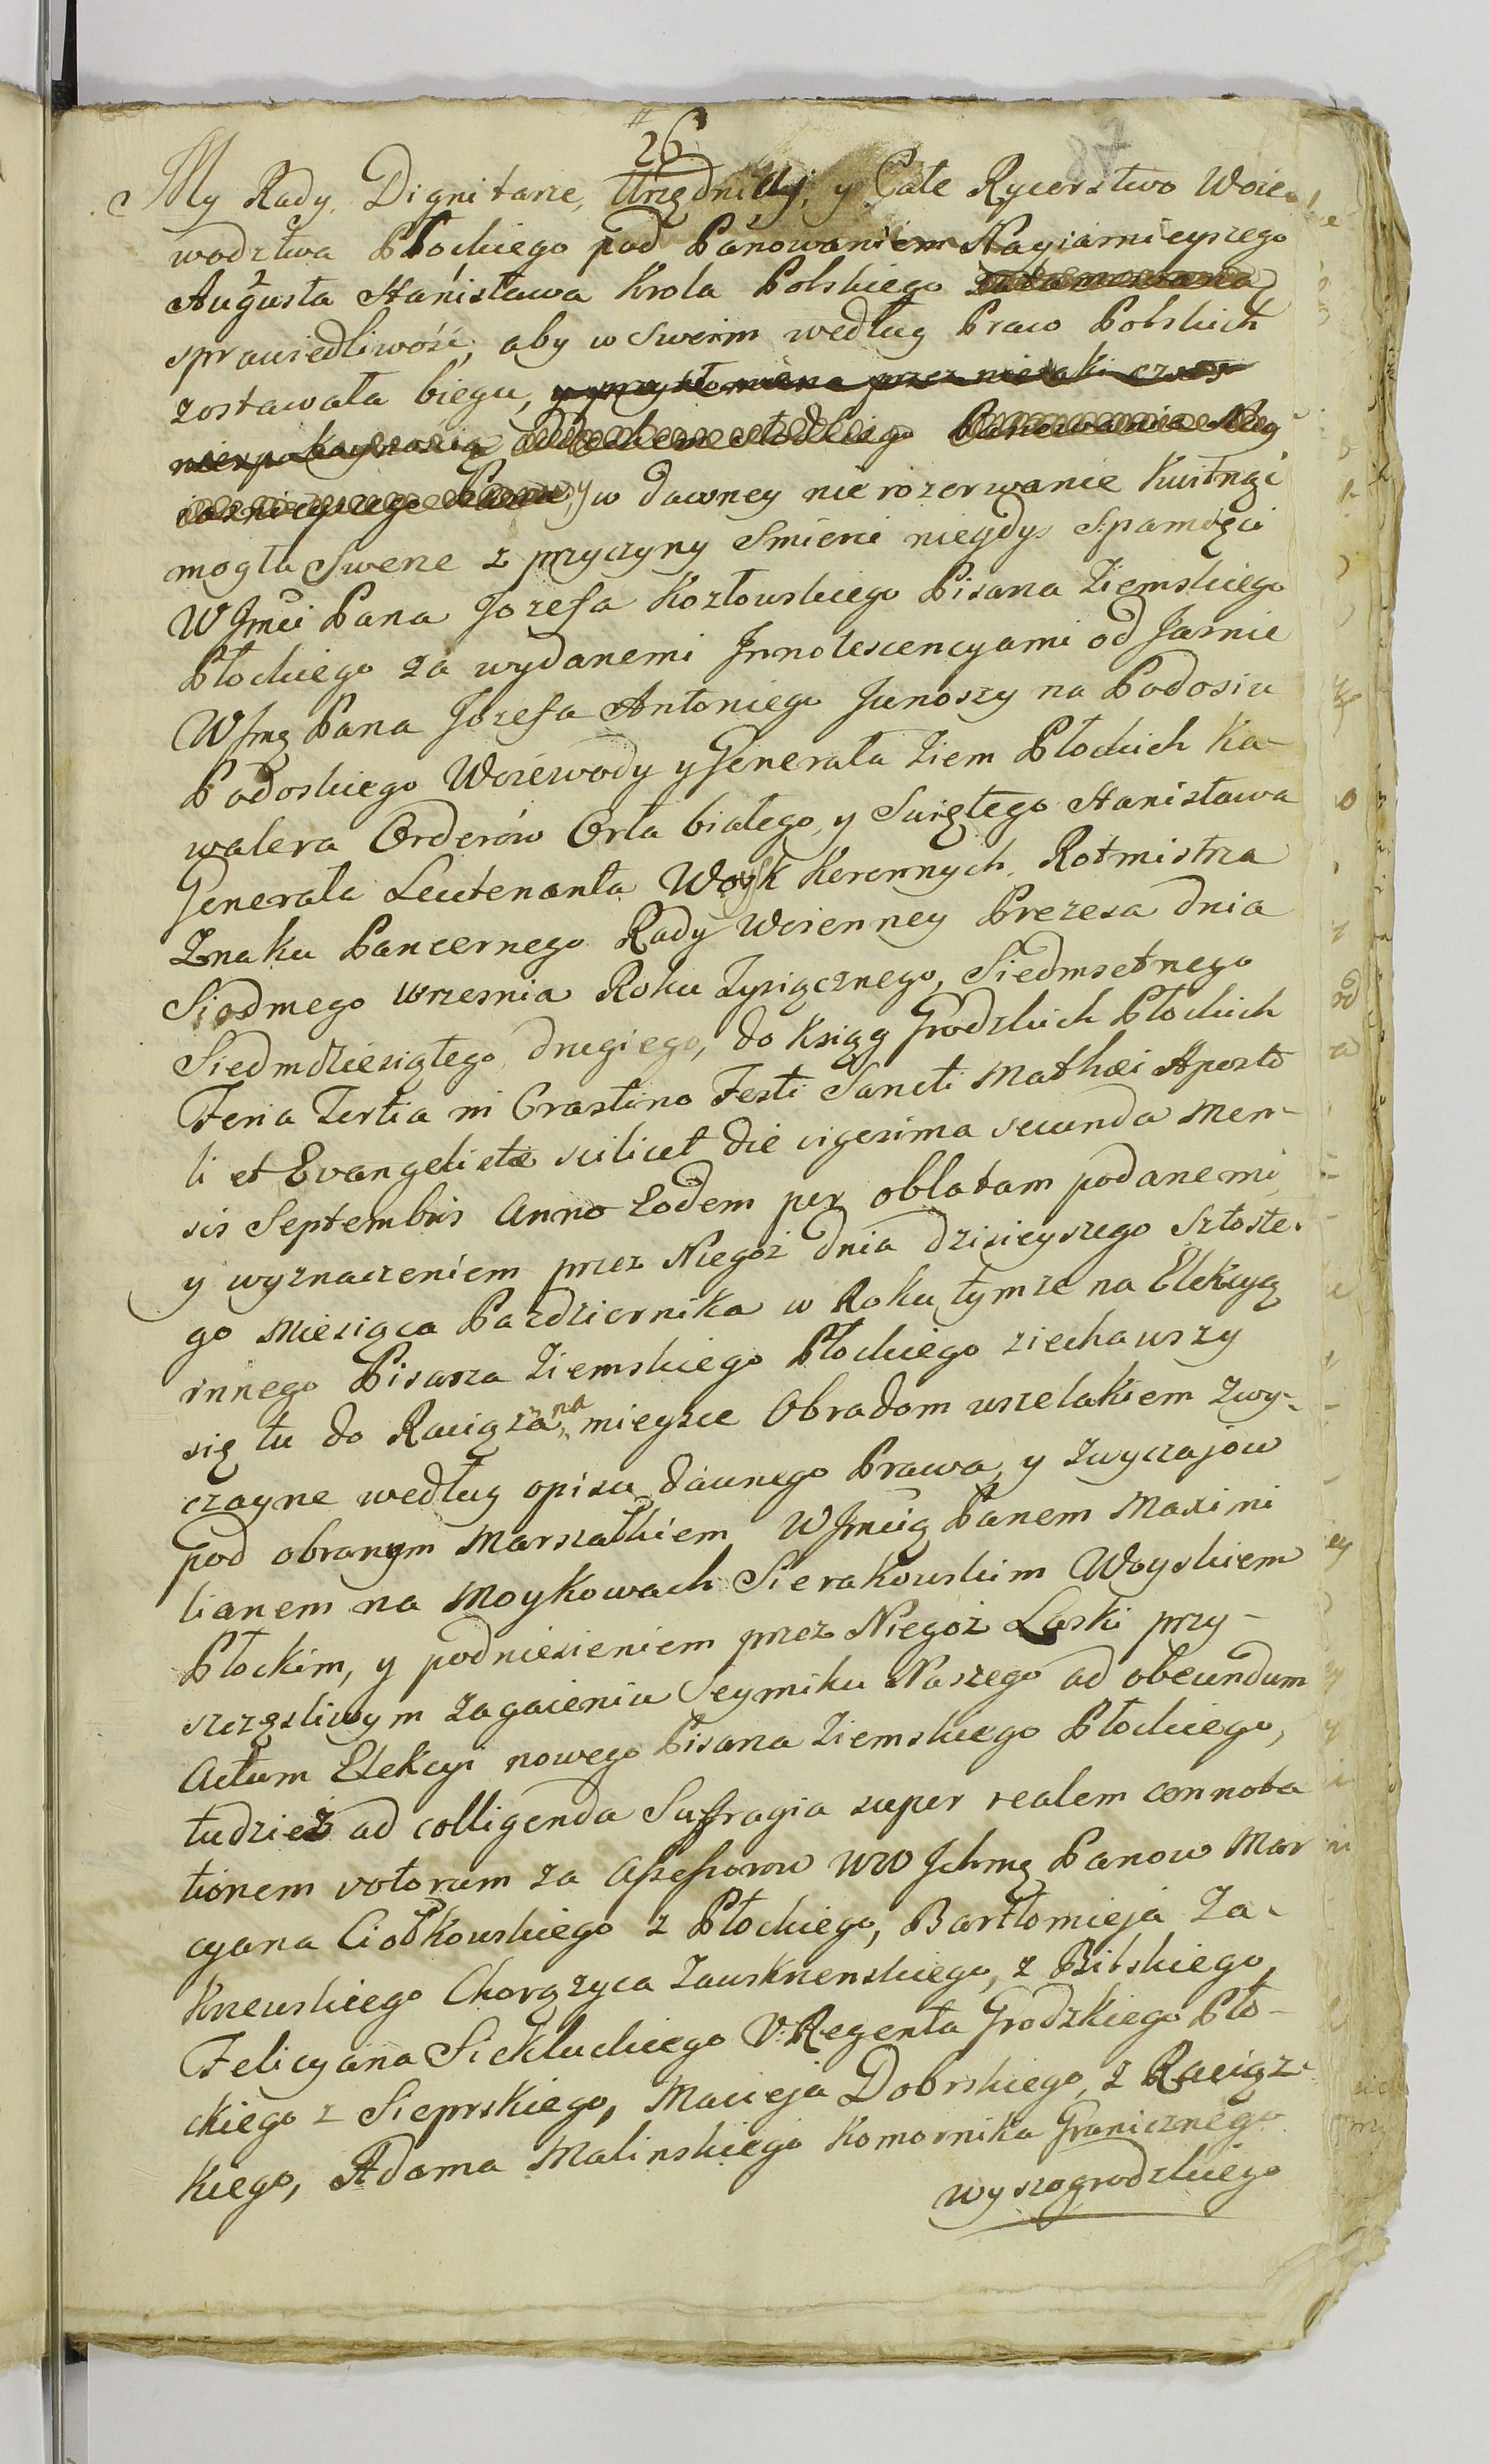 26
87
My Rady, Dignitarze, Urzędnicy, y Całe Rycerstwo Woie-
wodztwa Płockiego pod Panowaniem Nayiasnieyszego
Augusta Stanisława Krola Polskiego
sprawiedliwość, aby w Swerm według Praw Polskich
zostawała biegu, y przytłomiona przez nieiaki czas
niespokoynością słodkiego Panowania Nay
iasnieyszego Pana, y w dawney nie rozerwanie Kwitnąć
mogła Swerze z przyczyny Smierci niegdys S. pamięci
WJmci Pana Jozefa Kozłowskiego Pisarza Ziemskiego
Płockiego za wydanemi Jnnotescencyami od Jasnie
WJmę Pana Jozefa Antoniego Junoszy na Podosiu
Podoskiego Woiewody y Generała Ziem Płockich Ka-
walera Orderów Orła białego, y Swiętego Stanisława
Generała Leutenanta Woysk Koronnych, Rotmistrza
Znaku Pancernego Rady Woienney Prezesa dnia
Siodmego Wrzesnia Roku Tysiącznego, Siedmsetnego
Siedmdziesiątego drugiego, do Ksiąg Grodzkich Płockich
Feria Tertia in Crastino Festi Sancti Mathæi Aposto
li et Evangelistæ scilicet die vigesima secunda Men-
sis Septembris Anno Eodem per oblatam podanemi
y wyznaczeniem przez Niegoż dnia dzisieyszego Szoste-
go Miesiąca Pazdziernika w Roku tymże na Elekcyą
innego Pisarza Ziemskiego Płockiego ziechawszy
się tu do Raciąża, na mieysce Obradom wszelakiem Zwy-
czayne według opisu dawnego Prawa, y zwyczajow
pod obranym Marszałkiem WJmcią Panem Maximi
lianem na Moykowach Sierakowskim Woyskiem
Płockim, y podniesieniem przez Niegoż Laski przy-
szczęsliwym Zagaieniu Seymiku Naszego ad obeundum
Actum Elekcyi nowego Pisarza Ziemskiego Płockiego,
tudzież ad colligenda Suffragia super realem connota
tionem votorum za Assessorow WW Jchmę Panow Mar
cyana Ciołkowskiego z Płockiego, Bartłomieja Za-
Krzewskiego Chorążyca Zawskrzenskiego, z Bilskiego,
Felicyana Siekluckiego V: Regenta Grodzkiego Pło-
ckiego z Sieprskiego, Macieja Dobrskiego, z Raciąz-
kiego, Adama Malinskiego Komornika Granicznego
wyszogrodzkiego